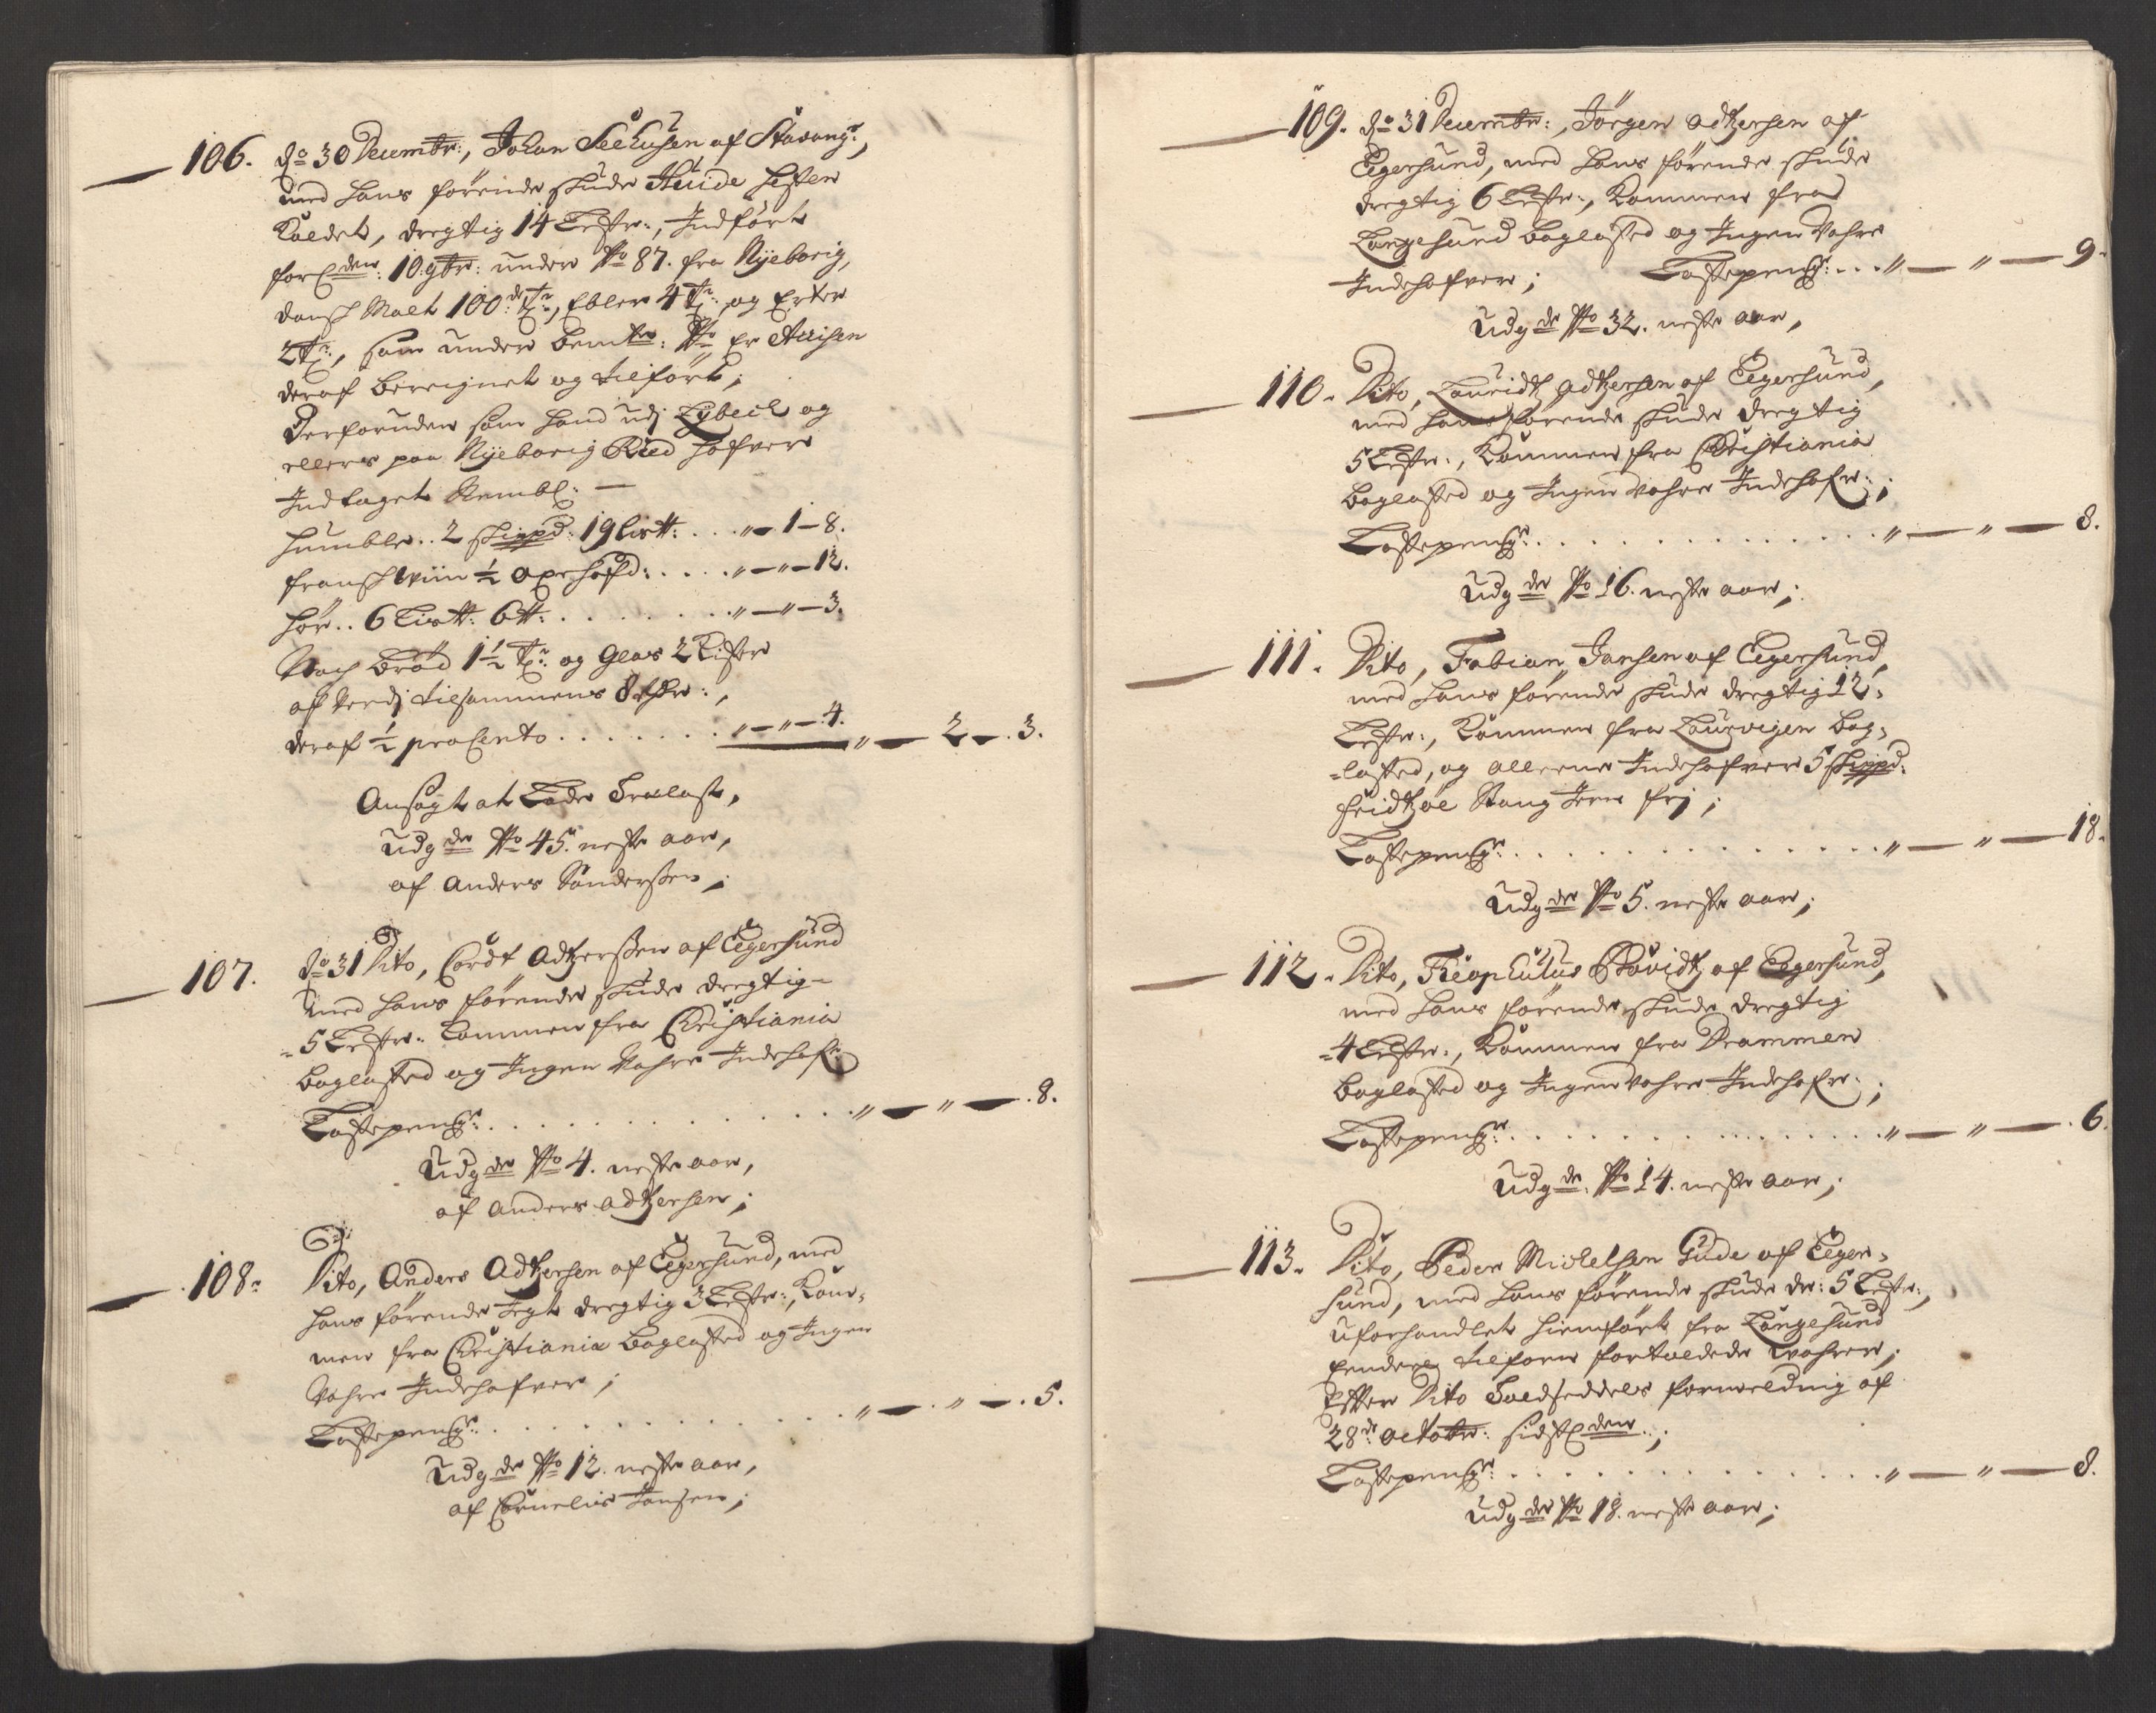 106. do 30 Decembr:, Johan Seehusen af Stavangr:,
med hans førende skude Huide Hesten
Kaldet, dregtig 14 Lester:, Indført
forleden: 10. 9br: under No 87. fra Nyeborig,
dansk Malt 100 de Tr:, Ebler 4 Tr: og Erter
2 Tr:, som under bemte: No er Accisen
deraf beregnet og tilført;
Derforuden som hand udj Lybech og
ellers paa Nyeborig Reed hafver
Indtaget Nembl: —
Humble .. 2 Skippd: 19 Lis℔: . . . „ — 1 — 8.
fransk Wiin ½ Oxehofd: . . . . „ — „ — 12.
Hør .. 6 Lis℔: 6 ℔: . . . . . . . „ — „ — 3.
Noch Brød 1½ Tr: og Glas 2 Kister
af Verdj tilsammens 8 rdr:,
deraf ½ procento . . . . . . . „ — „ — 4. „ — 2 — 3.
Ansøgt at Lade Trælast,
Udg de No 45. neste aar,
af Anders Sanderssen;
107. do 31 Dito, Cordt Adtzerssen af Eegersund
med hans førende skude dregtig
5 Lester: kommen fra Christiania
baglasted og Ingen Vahre Indehafr:
Lastepengr: . . . . . . . . . . „ — „ — 8.
Udg de No 4. neste aar,
af Anders Adtzersen;
108. Dito, Anders Adtzersen af Eegersund, med
hans førende Jegt dregtig 3 Lester:, Kom-
men fra Christiania baglasted og Ingen
Vahre Indehafver;
Lastepengr: . . . . . . . . . . „ — „ — 5.
Udg de No 12. neste aar,
af Cornelius Jansen;
109. do 31 Decembr:, Jørgen Adtzersen af
Eegersund, med hans førende skude
dregtig 6 Lester:, Kommen fra
Langesund baglasted og Ingen Vahre
Indehafver; Lastepengr: . . . „ — „ — 9.
Udg de No 32. neste aar,
110. Dito, Lauridtz Adtzersen af Eegersund,
med hans førende skude dregtig
5 Lester:, Kommen fra Christiania
baglasted og Ingen Vahre Indehafr:;
Lastepengr: . . . . . . . . . . „ — „ — 8.
Udg de No 16. neste aar;
111. Dito, Fabian Jansen af Eegersund,
med hans førende skude dregtig 12
Lester:, Kommen fra Laurvigen bag-
lasted, og allene Indehafver 5 Skippd:
Fridtzøe Stang Jern frj;
Lastepengr: . . . . . . . . . . „ — „ — 18.
Udg de No 5. neste aar;
112. Dito, Theophilus Davidtz af Eegersund,
med hans førende skude dregtig
4 Lester:, Kommen fra Drammen
baglasted og Ingen Vahre Indehafr:;
Lastepengr: . . . . . . . . . . „ — „ — 6.
Udg de. No 14. neste aar;
113. Dito, Peder Michelsen Gude af Eeger-
sund, med hans førende skude dr: 5 Lester:,
uforhandlet hiemført fra Langesund
tilforn fortoldede vahrer;
Efter Dito Toldseddels formelding af
28de Octobr: sidstleden:;
Lastepengr: . . . . . . . . . . „ — „ — 8.
Udg de No 18. neste aar;